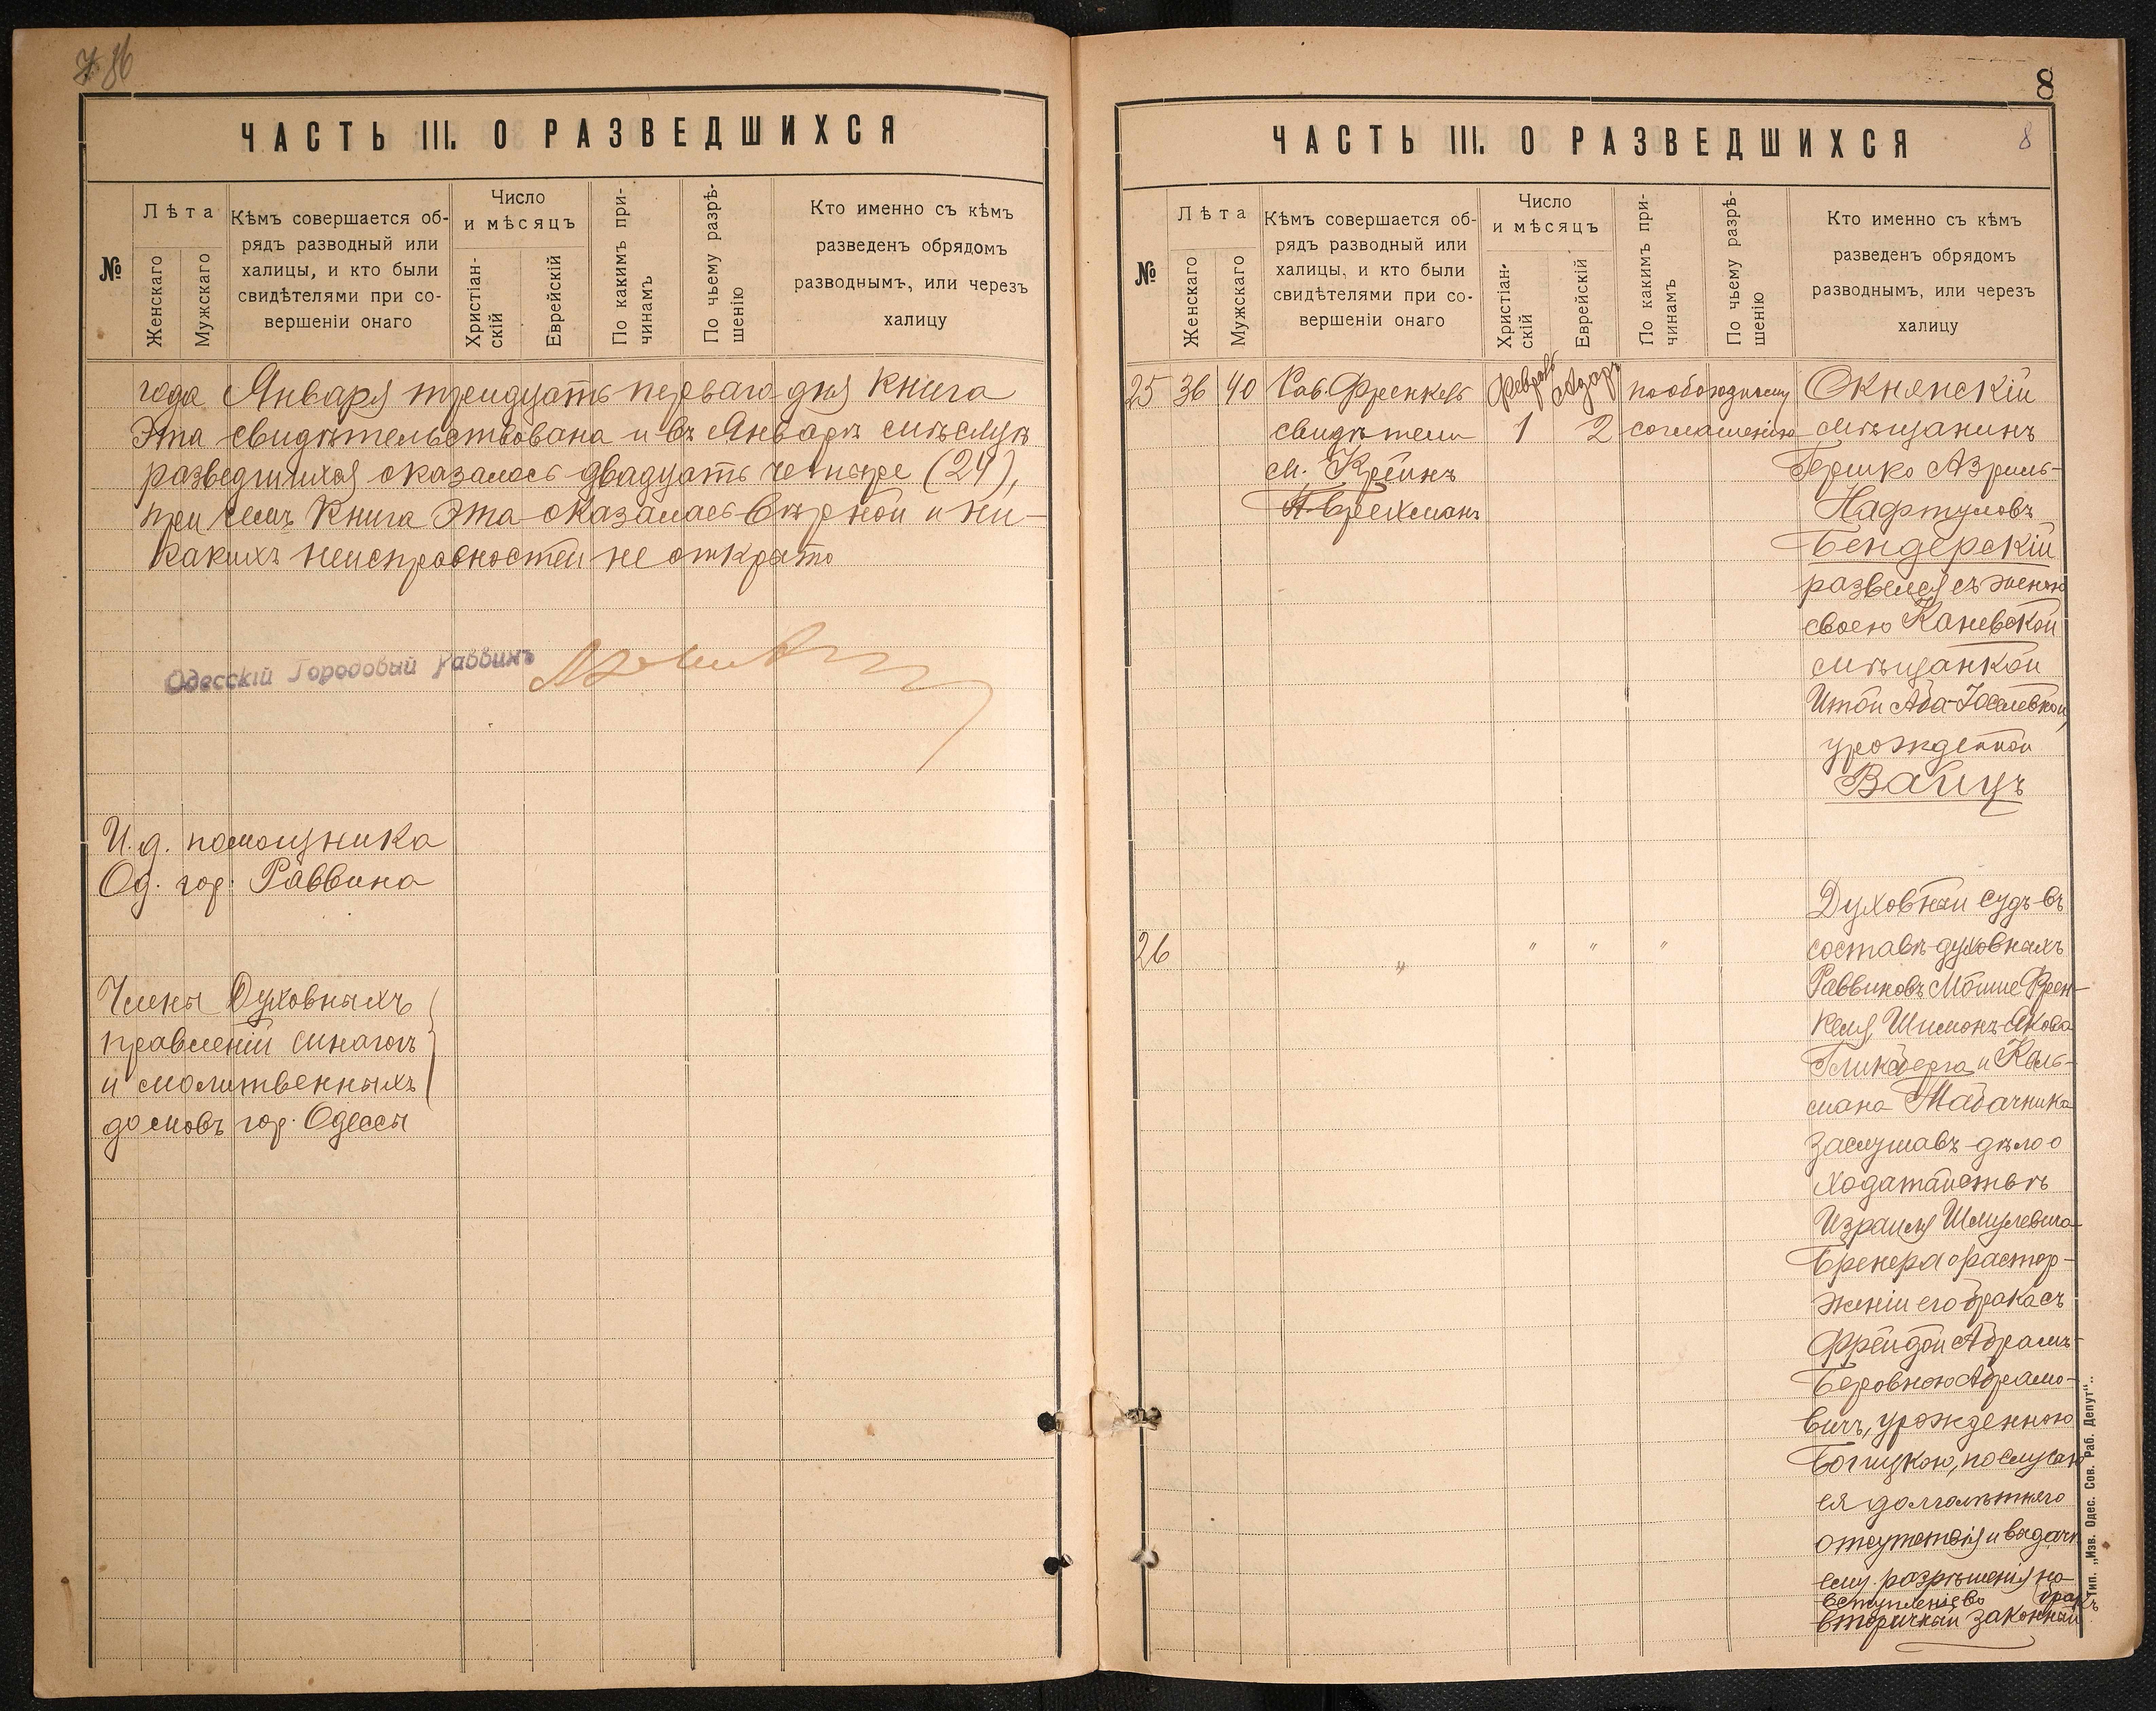 ЧАСТЬ III. О РАЗВЕДШИХСЯ
№
Лѣта
Женскаго
Мужскаго
Кѣмъ совершается об-
рядъ разводный или
халицы, и кто были
свидѣтелями при со-
вершеніи онаго
Число
и мѣсяцъ
Христіан-
скій
Еврейскій
По какимъ при-
чинамъ
По чьему разрѣ-
шенію
Кто именно съ кѣмъ
разведенъ обрядомъ
разводнымъ, или черезъ
халицу
года Января тридцать перваго дня книга
Эта свидѣтельствована и въ Январѣ мѣсяцѣ
разведшихся оказалось двадцать четыре (24),
при семъ Книга Эта оказалась вѣрной и ни-
какихъ неисправностей не открыто
Одесскій Городовый Раввинъ
И. д. помощника
Од. гор. Раввина
Члены Духовныхъ
правленій синагогъ
и молитвенныхъ
домовъ гор. Одессы
8
8
ЧАСТЬ III. О РАЗВЕДШИХСЯ
№
Лѣта
Женскаго
Мужскаго
Кѣмъ совершается об-
рядъ разводный или
халицы, и кто были
свидѣтелями при со-
вершеніи онаго
Число
и мѣсяцъ
Христіан-
скій
Еврейскій
По какимъ при-
чинамъ
По чьему разрѣ-
шенію
Кто именно съ кѣмъ
разведенъ обрядомъ
разводнымъ, или черезъ
халицу
25 36 40 Рав. Френкель Февраль Адаръ по обоюдному
свидѣтели 1 2 соглашенію
М. Крейнъ
А. Брехманъ
Окнянскій
мѣщанинъ
Гершко Азриль-
Нафтуловъ
Бендерскій
развелся съ женою
своею Каневской
мѣщанкой
Итой Аба-Іоселевной,
урожденной
Вайцъ
26 " " " "
Духовный судъ въ
составѣ духовныхъ
Раввиновъ Мошие Френ-
келя, Шимонъ-Якова
Гликберга и Каль-
мана Табачника
заслушавъ дѣло о
ходатайствѣ
Израиля Шмулевича
Бренера о растор-
женіи его брака съ
Фрейдой Абрамъ-
Беровною Абрамо-
вичъ, урожденною
Богуцкою, по случаю
ея долголѣтняго
отсутствія и выдачѣ
ему разрѣшенія на
вступленіе во
вторичный законный бракъ
Тип. „Изв. Одес. Сов. Раб. Депут".